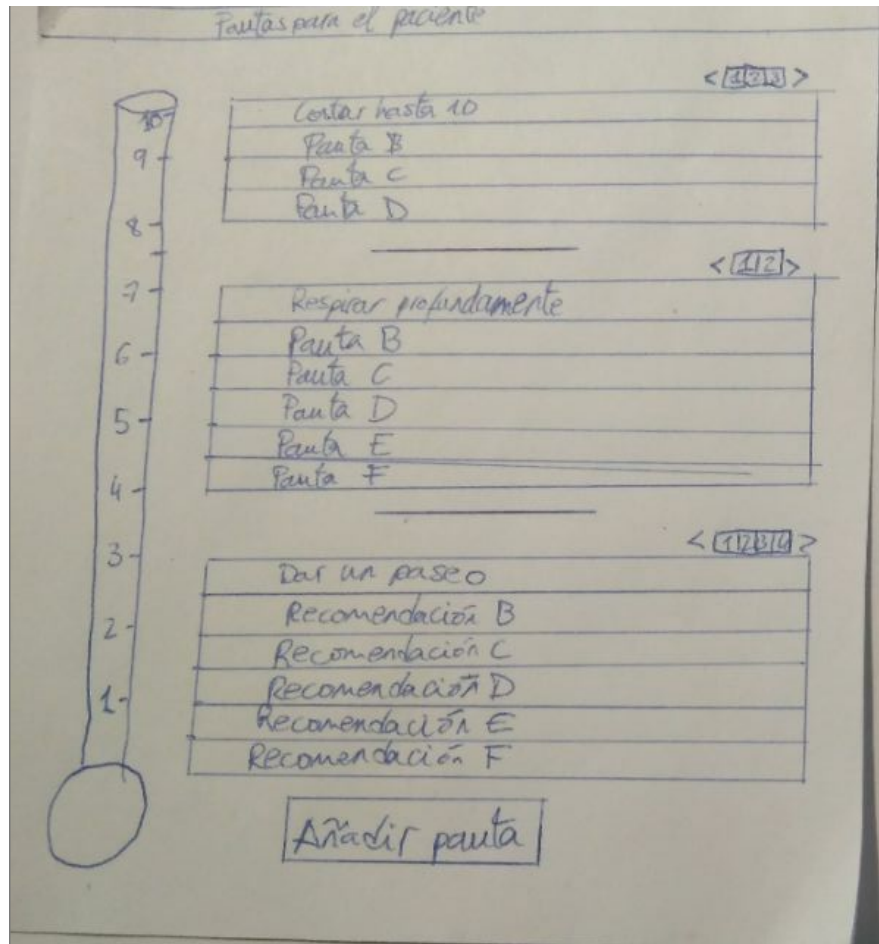 Pautas para el paciente
< 1 2 3 >
10
Contar hasta 10
Pauta B
9
Pauta C
Pauta D
8
< 1 2 >
7
Respirar profundamente
Pauta B
6
Pauta C
Pauta D
5
Pauta E
Pauta F
4
< 1 2 3 4 >
3
Dar un paseo
Recomendación B
2
Recomendación C
Recomendación D
1
Recomendación E
Recomendación F
Añadir pauta